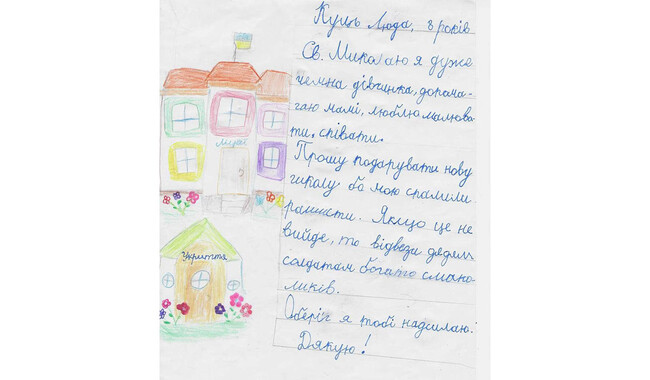 Куць Люда, 8 років
Св. Миколаю я дуже
чемна дівчинка, допома-
гаю мамі, люблю малюва
ти, співати.
Прошу подарувати нову
школу бо мою спалили
рашисти. Якщо це не
вийде, то відвези дядям
солдатам богато смако-
ликів.
Оберіг я тобі надсилаю.
Дякую!
Ліцей
Укриття